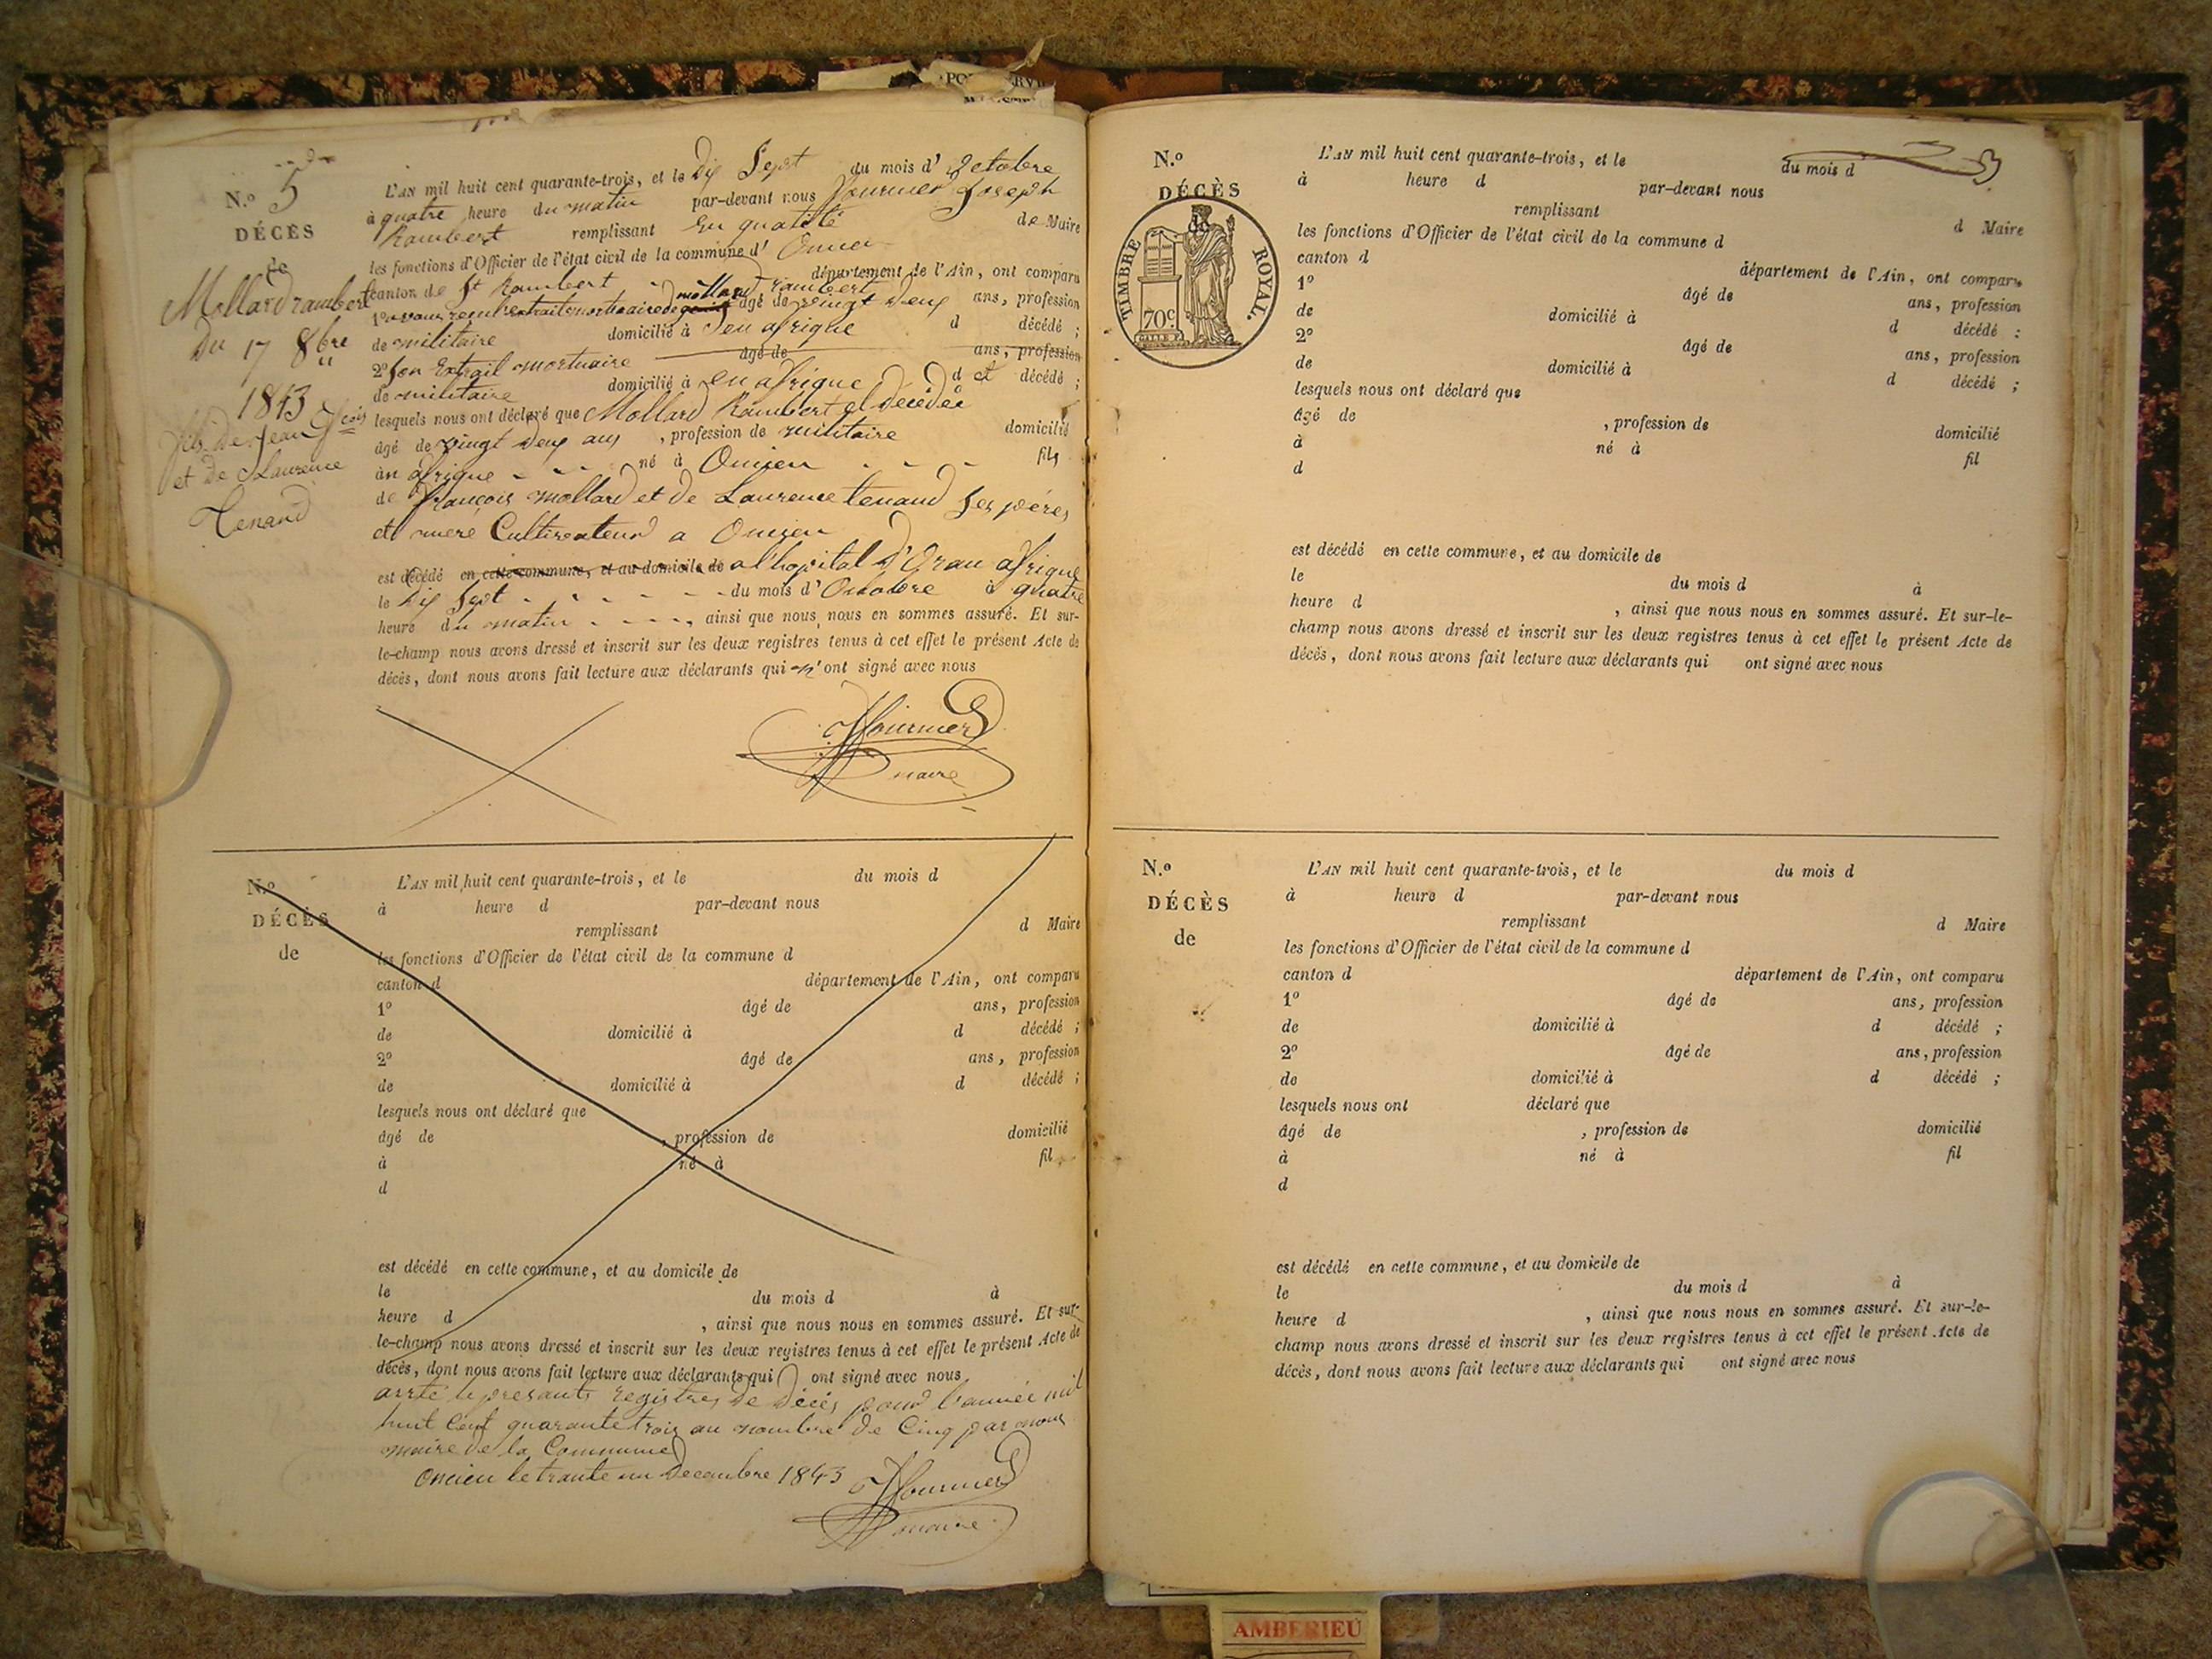 N.º 5
DÉCÈS
de
Mollard rambert
Du 17 8bre
1843
fils de Jean fcois
et de Laurence
Tenand
L'AN mil huit cent quarante-trois, et le Dix Sept du mois d' 8ctobre
à quatre heure du matin par-devant nous fournier Joseph
Rambert remplissant en qualité de Maire
les fonctions d'Officier de l'état civil de la commune d' Oncieu
canton de St Rambert département de l'Ain, ont comparu
1º avons reçu extrait mortuaire de mollard rambert âgé de vingt deux ans, profession
de militaire domicilié à en afrique d décédé ;
2º Son Extrait mortuaire âgé de ans, profession
de militaire domicilié à en afrique d et décédé ;
lesquels nous ont déclaré que Mollard Rambert et décédée
âgé de vingt deux ans , profession de militaire domicilié
an afrique né à Oncieu fils
de françois mollard et de Laurence tenand Ses péres
et mere Cultivateur a Oncieu
est décédé en cette commune, et au domicile de al'hopital d'Oran afrique
le Dix Sept du mois d' Octobre à quatre
heure du matin , ainsi que nous nous en sommes assuré. Et sur-
le-champ nous avons dressé et inscrit sur les deux registres tenus à cet effet le présent Acte de
décès, dont nous avons fait lecture aux déclarants qui n' ont signé avec nous
JFournier
maire
N.º
DÉCÈS
de
L'AN mil huit cent quarante-trois, et le du mois d
à heure d par-devant nous
remplissant d Maire
les fonctions d'Officier de l'état civil de la commune d
canton d département de l'Ain, ont comparu
1º âgé de ans, profession
de domicilié à d décédé ;
2º âgé de ans, profession
de domicilié à d décédé ;
lesquels nous ont déclaré que
âgé de , profession de domicilié
à né à fil
d
est décédé en cette commune, et au domicile de
le du mois d à
heure d , ainsi que nous nous en sommes assuré. Et sur-
le-champ nous avons dressé et inscrit sur les deux registres tenus à cet effet le présent Acte de
décès, dont nous avons fait lecture aux déclarants qui ont signé avec nous
arrté le presants registres de décés pour l'année mil
huit Cent quarante trois au nombre de Cinq par nous
maire de la Commune
Oncieu le trante un Decembre 1843
JFournier
maire
N.º
DÉCÈS
TIMBRE ROYAL.
70c
L'AN mil huit cent quarante-trois, et le du mois d
à heure d par-devant nous
remplissant d Maire
les fonctions d'Officier de l'état civil de la commune d
canton d département de l'Ain, ont comparu
1º âgé de ans, profession
de domicilié à d décédé :
2º âgé de ans, profession
de domicilié à d décédé ;
lesquels nous ont déclaré que
âgé de , profession de domicilié
à né à fil
d
est décédé en cette commune, et au domicile de
le du mois d à
heure d , ainsi que nous nous en sommes assuré. Et sur-le-
champ nous avons dressé et inscrit sur les deux registres tenus à cet effet le présent Acte de
décès, dont nous avons fait lecture aux déclarants qui ont signé avec nous
N.º
DÉCÈS
de
L'AN mil huit cent quarante-trois, et le du mois d
à heure d par-devant nous
remplissant d Maire
les fonctions d'Officier de l'état civil de la commune d
canton d département de l'Ain, ont comparu
1º âgé de ans, profession
de domicilié à d décédé ;
2º âgé de ans, profession
de domicilié à d décédé ;
lesquels nous ont déclaré que
âgé de , profession de domicilié
à né à fil
d
est décédé en cette commune, et au domicile de
le du mois d à
heure d , ainsi que nous nous en sommes assuré. Et sur-le-
champ nous avons dressé et inscrit sur les deux registres tenus à cet effet le présent Acte de
décès, dont nous avons fait lecture aux déclarants qui ont signé avec nous
AMBERIEU